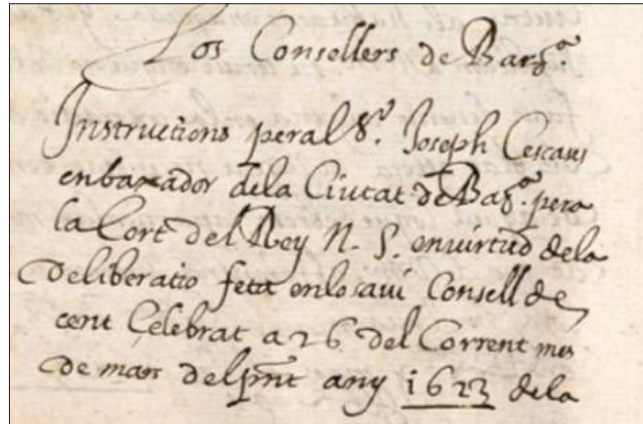 Los Consellers de Barç.ª
Instructions peral S.r Joseph Cescases
enbaxador dela Ciutat de Bar.ª pera
la Cort del Rey N. S. en virtud dela
Deliberatio feta en lo savi Consell de
cent Celebrat a 26 del Corrent mes
de mars del pnt any 1623 dela